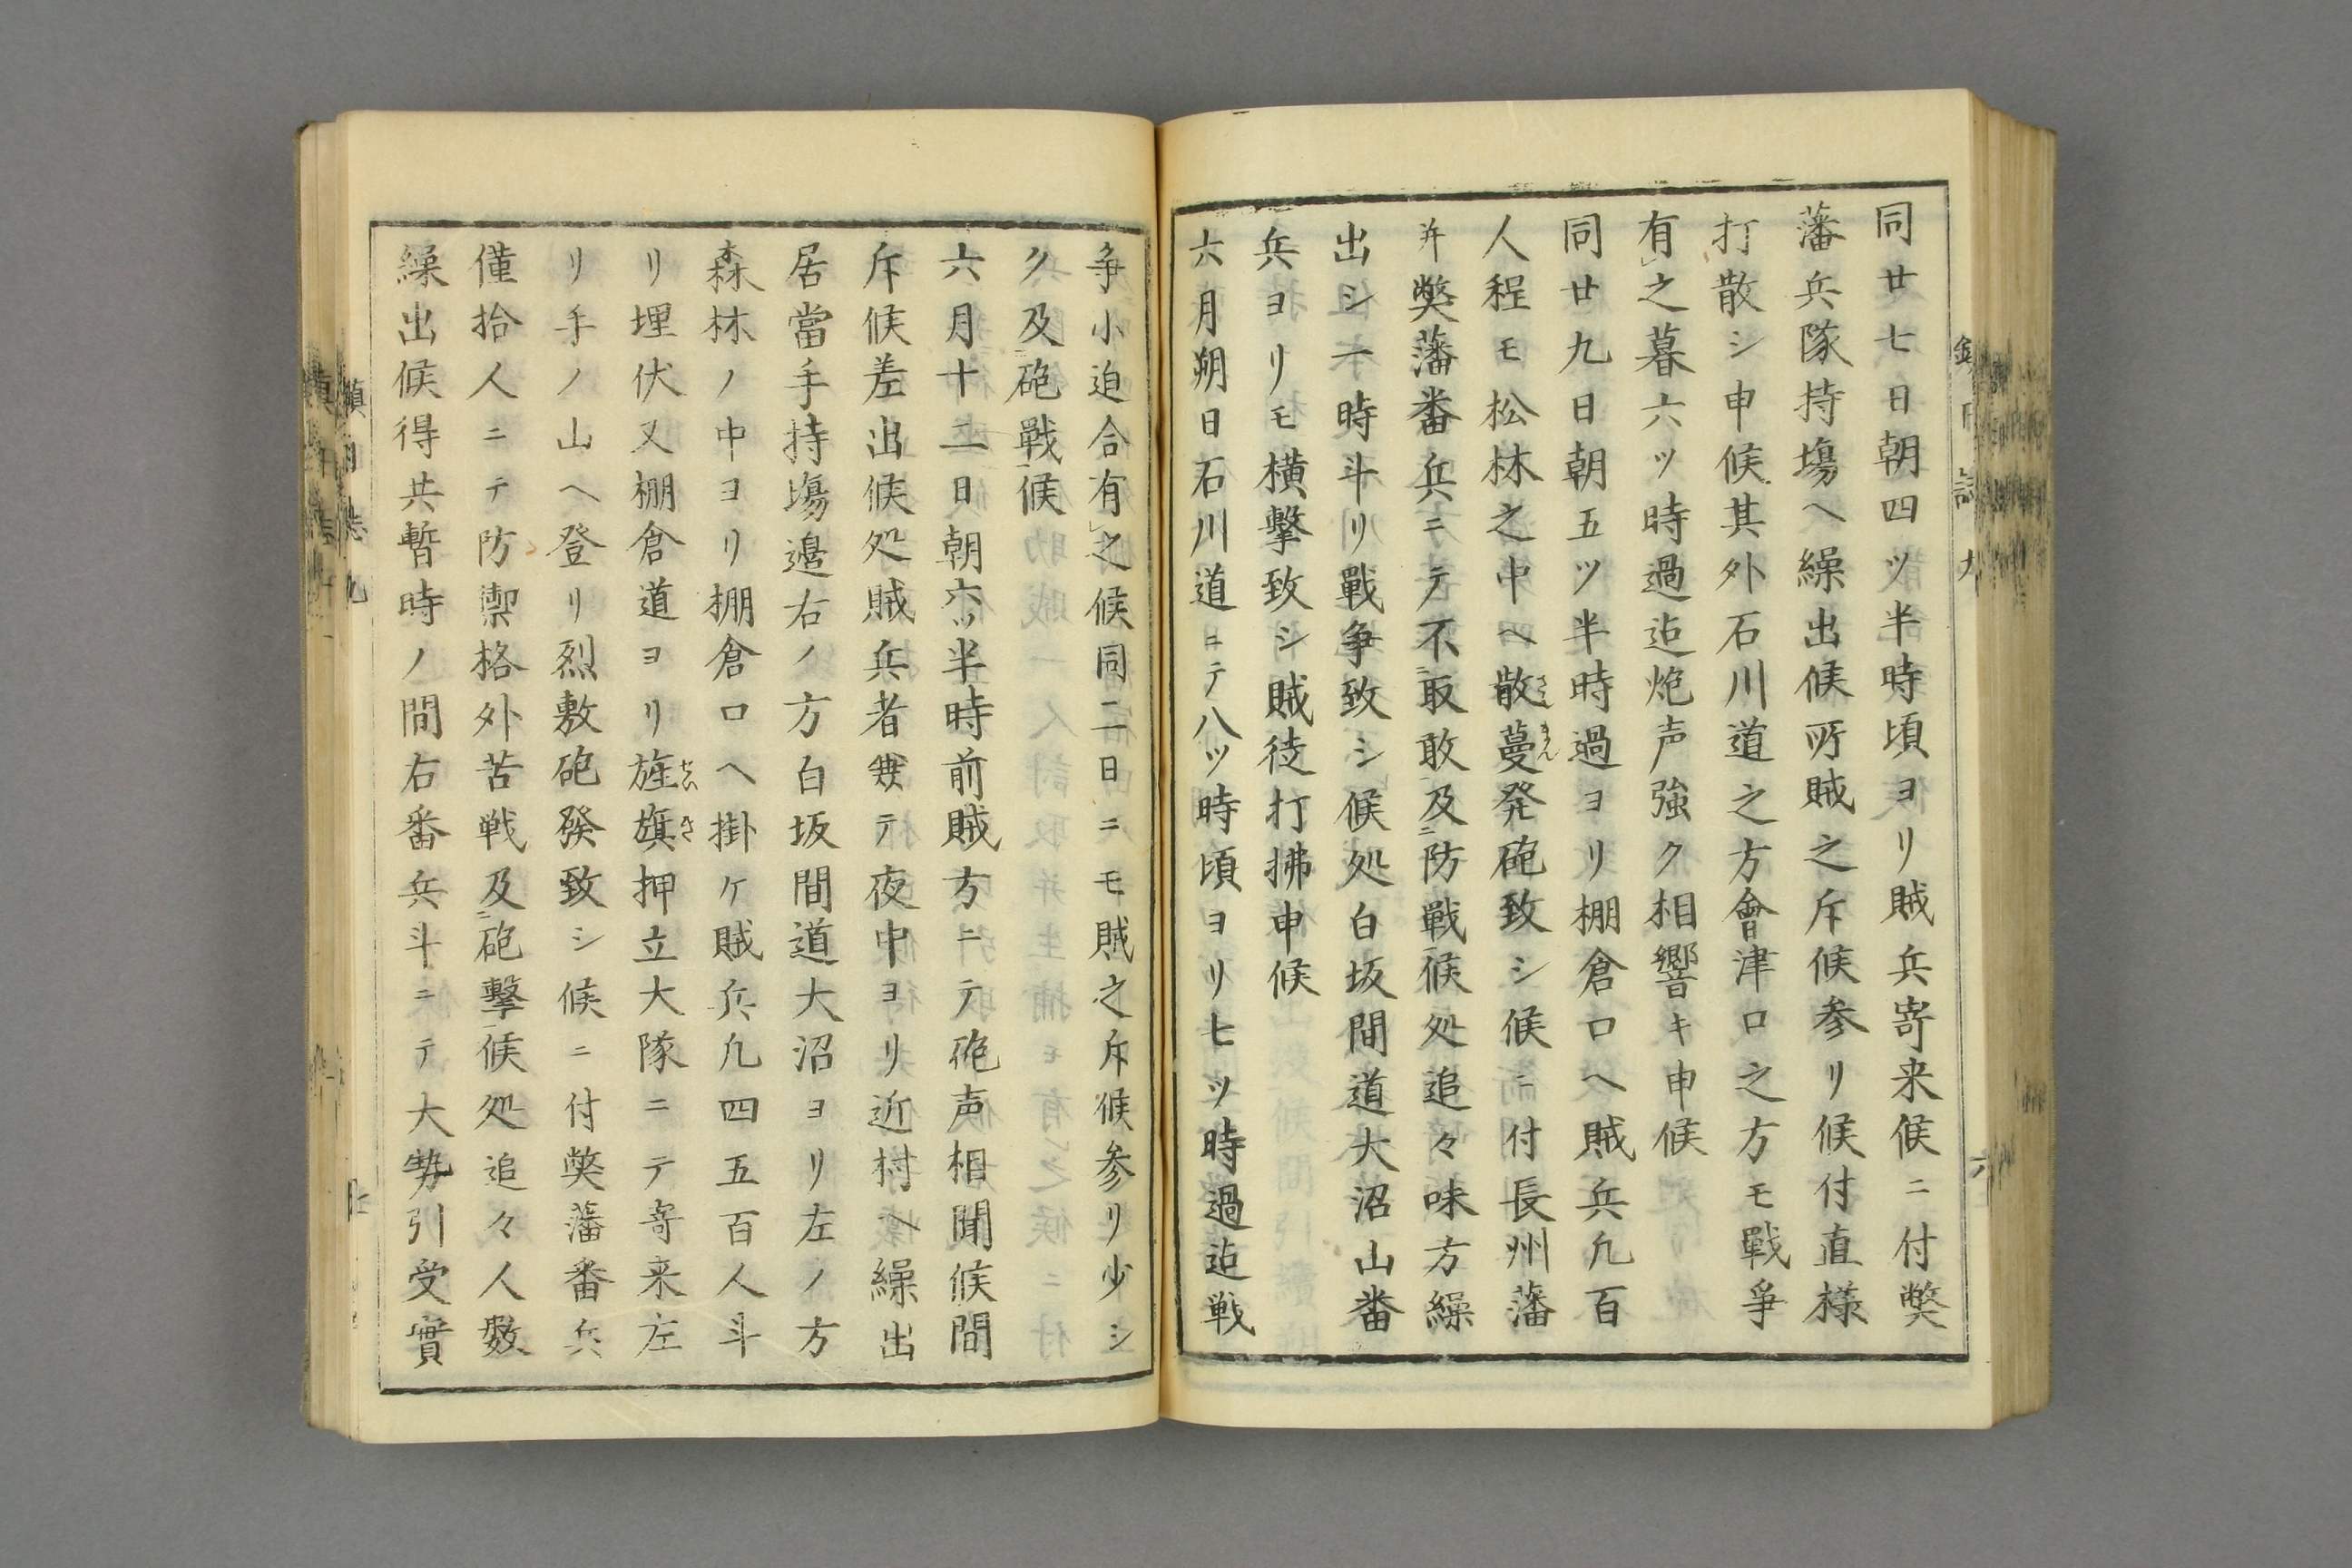 同廿七日朝四ツ半時頃ヨリ賊兵寄来候ニ付獘
藩兵隊持場ヘ繰出候所賊之斥候参リ候付直様
打散シ申候其外石川道之方會津口之方モ戰爭
有之暮六ツ時過迠炮声強ク相響キ申候
同廿九日朝五ツ半時過ヨリ棚倉口ヘ賊兵凢百
人程モ松林之中ヘ散蔓発砲致シ候ニ付長州藩
并獘藩番兵ニテ不取敢及防戦候処追々味方繰
出シ一時斗リ戰争致シ候処白坂間道大沼山番
兵ヨリモ横撃致シ賊徒打拂申候
六月朔日石川道ニテ八ツ時頃ヨリ七ツ時過迠戦
争小迫合有之候同二日ニモ賊之斥候参リ少シ
ク及砲戰候
六月十二日朝六ツ半時前賊方ニテ砲声相聞候間
斥候差出候処賊兵者無テ夜中ヨリ近村ヘ繰出
居當手持場邉右ノ方白坂間道大沼ヨリ左ノ方
森林ノ中ヨリ棚倉口ヘ掛ケ賊兵凢四五百人斗
リ埋伏又棚倉道ヨリ旌旗押立大隊ニテ寄来左
リ手ノ山ヘ登リ烈敷砲發致シ候ニ付獘藩番兵
僅拾人ニテ防禦格外苦戦及砲撃候処追々人数
繰出候得共暫時ノ間右番兵斗ニテ大勢引受實
鎮日誌九